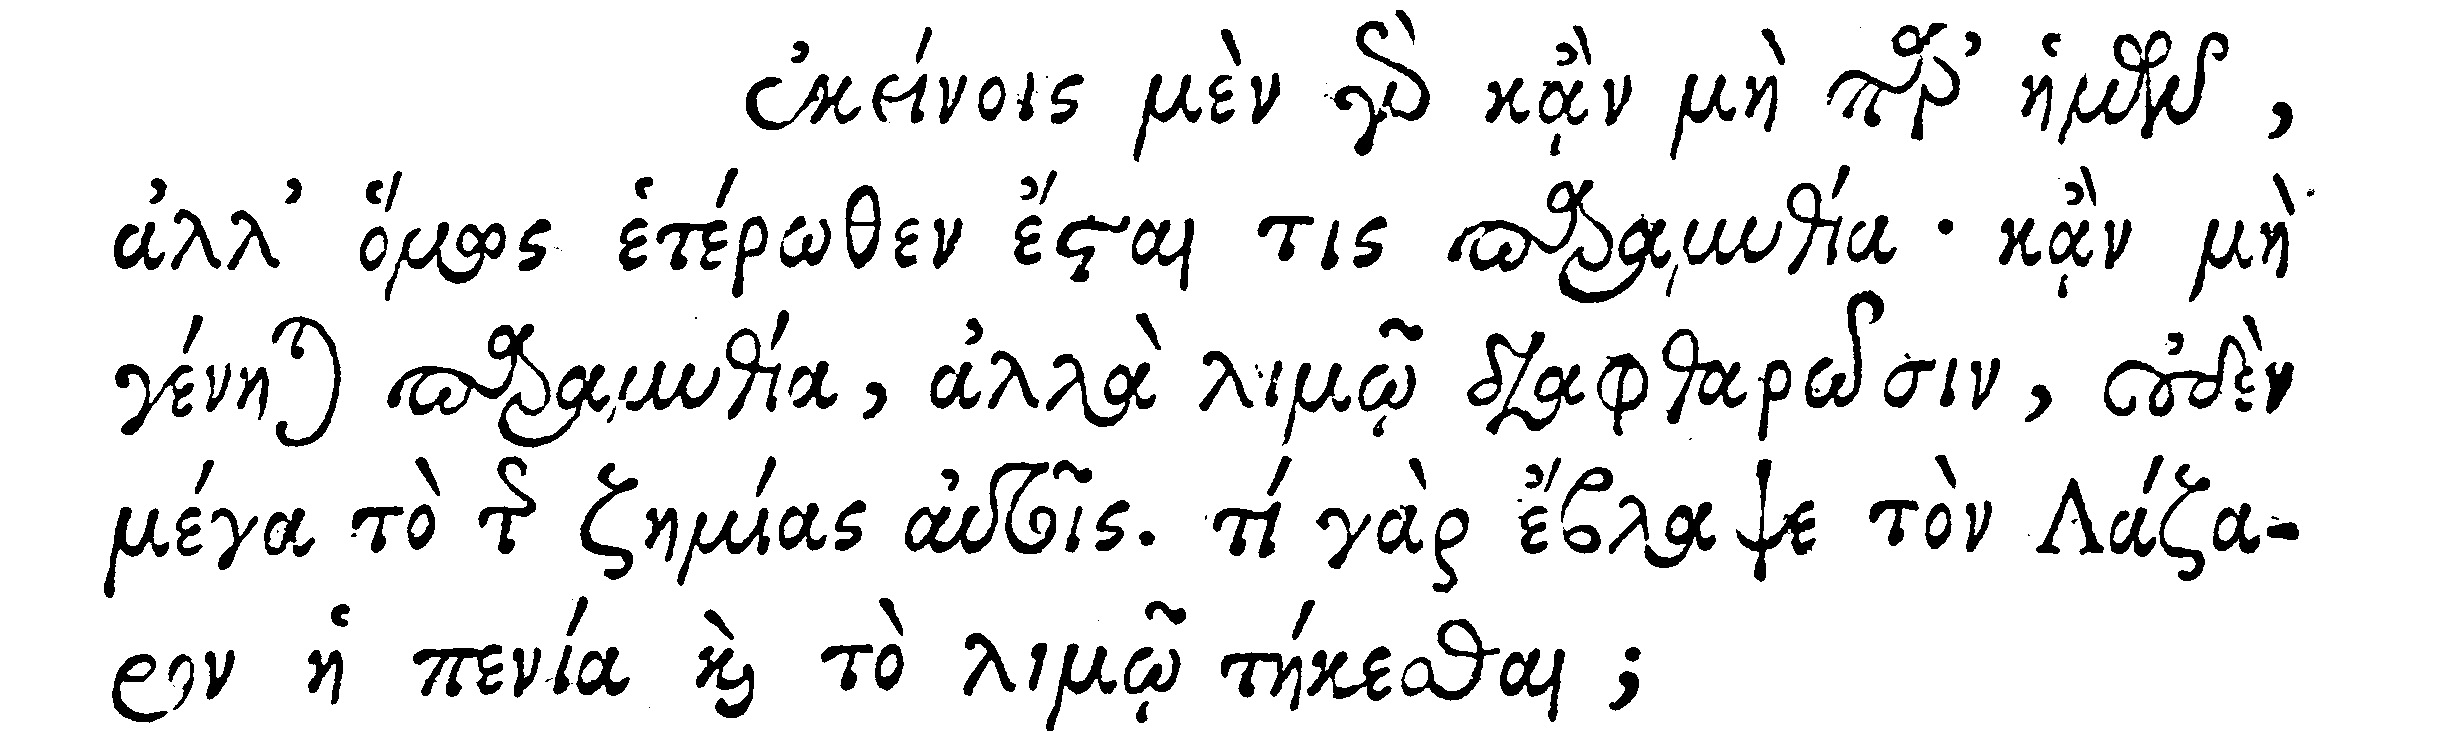 ἐκείνοις μὲν γὰρ κᾂν μὴ παρ’ ἡμῶν,
ἀλλ’ ὅμως ἑτέρωθεν ἔσται τις παραμυθία· κᾂν μὴ
γένηται παραμυθία, ἀλλὰ λιμῷ διαφθαρῶσιν, οὐδὲν
μέγα τὸ τῆς ζημίας αὐτοῖς. τί γὰρ ἔβλαψε τὸν Λάζα-
ρον ἡ πενία καὶ τὸ λιμῷ τήκεσθαι;